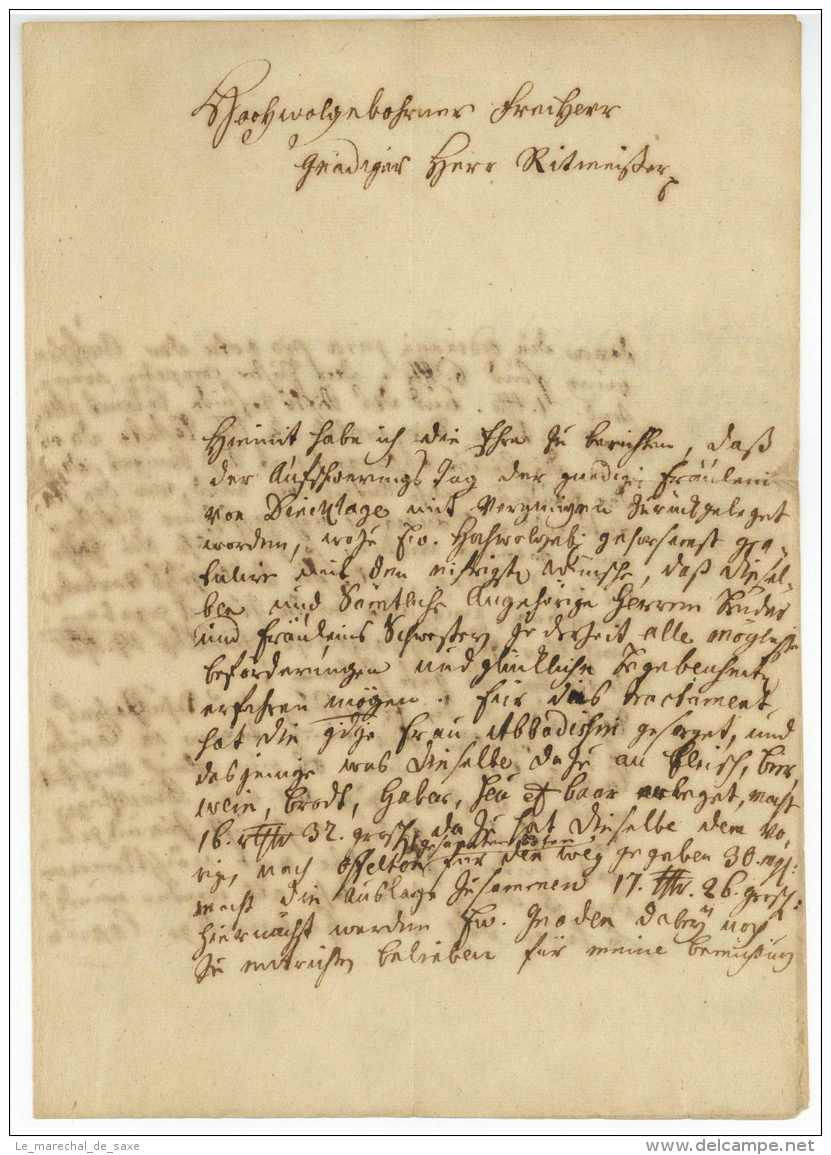 Hochwolgebohrner FreiHerr
Gnädiger Herr Ritmeister
Hiemit habe ich die Ehre zu berichten, daß
der Aufschwerungs Tag der gnedig: Fräulein
von Dincklage mit Vergnügen zurückgeleget
worden, wozu Ew. Hochwolgeb: gehorsamst gra-
tulire mit den eifrigste Wunsche, daß diesel-
ben und Sämtliche Angehörige Herren Brüder
und Fräuleins Schwestern jederzeit alle mögliche
beförderungen und glückliche Begebenheiten
erfahren mögen. Für das tractament
hat die Frau Abbadissin gesorget, und
dasjenige was dieselbe dazu an Fleisch, bier,
wein, brodt, Haber, Heu et baar ausgeleget, macht
16. rthlr 32. grosch, dazu hat dieselbe dem
nach für den weg gegeben 30. mgl:
macht die Auslage zusammen 17. rthlr. 26. grosch:
Hiernächst werden Ew. Gnaden dabey noch
zu entrichten belieben für meine bemühung
Le_marechal_de_saxe
delcampe.net